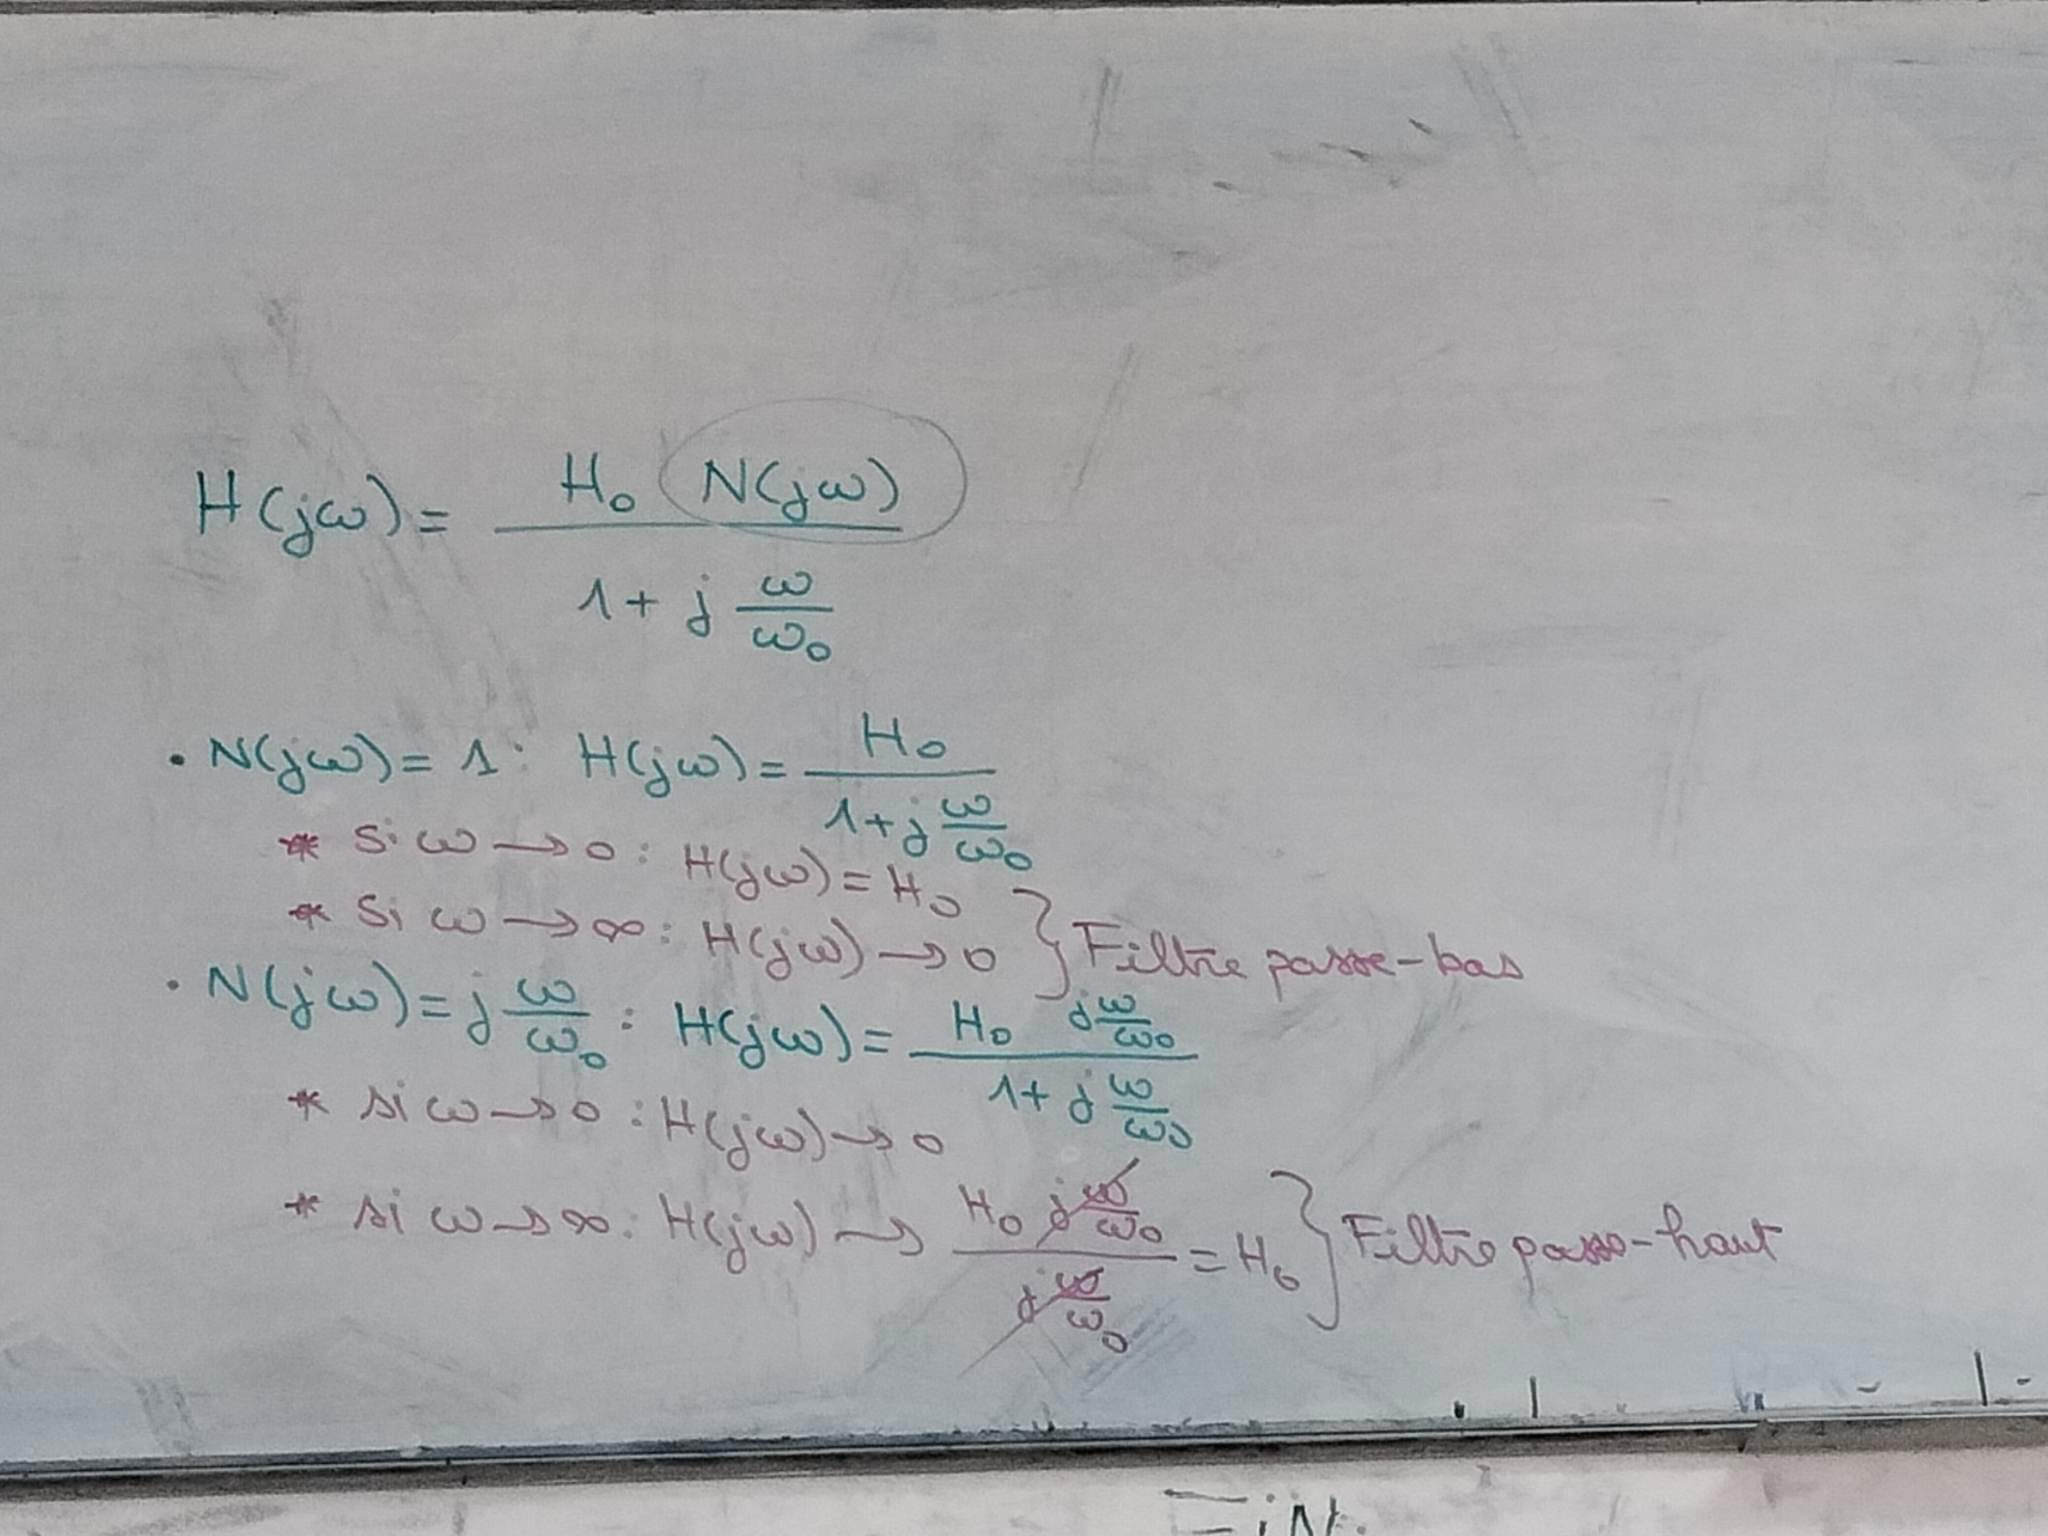 H(jω) = H₀ N(jω) / (1 + j ω/ω₀)
• N(jω) = 1 : H(jω) = H₀ / (1 + j ω/ω₀)
* Si ω → 0 : H(jω) = H₀
* Si ω → ∞ : H(jω) → 0 } Filtre passe-bas
• N(jω) = j ω/ω₀ : H(jω) = H₀ j ω/ω₀ / (1 + j ω/ω₀)
* si ω → 0 : H(jω) → 0
* si ω → ∞ : H(jω) → H₀ j ω/ω₀ / (j ω/ω₀) = H₀ } Filtre passe-haut